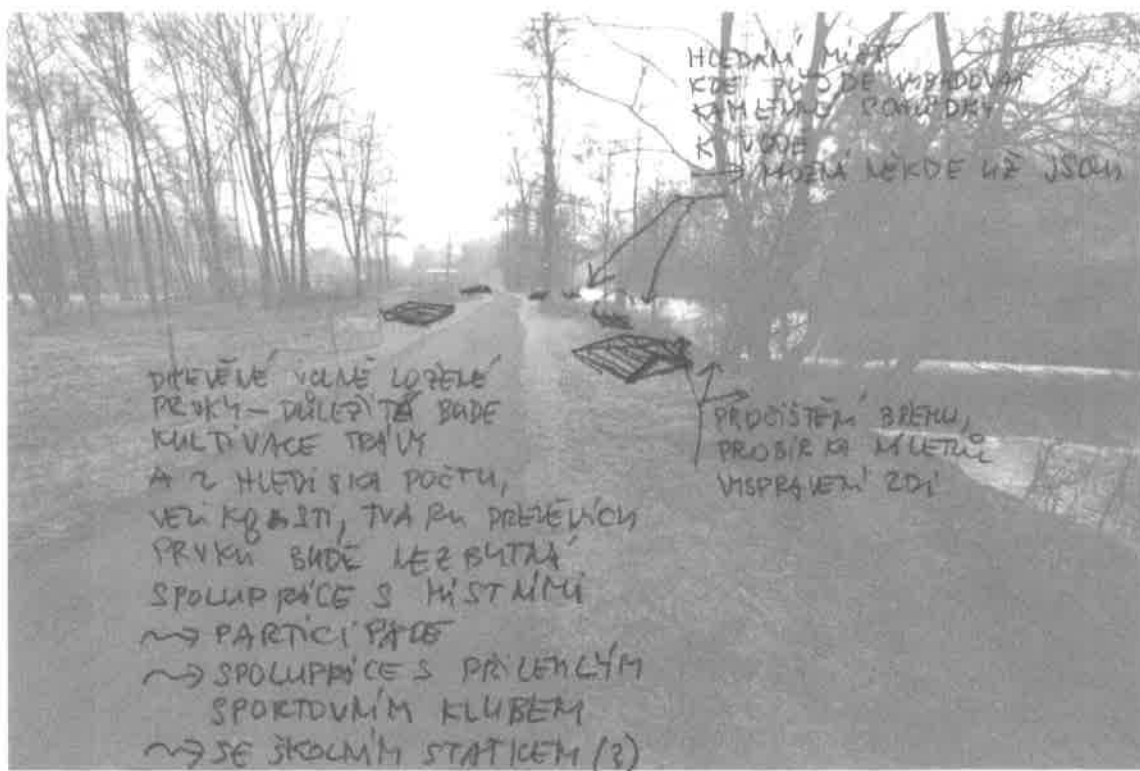 HLEDÁNÍ MÍST
KDE PŮJDE VYBUDOVAT
K VODE
→ MOŽNÁ NĚKDE UŽ JSOU
DŘEVĚNÉ VOLNĚ LOŽENÉ
PRVKY – DŮLEŽITÁ BUDE
KULTIVACE TRÁVY
A Z HLEDISKA POČTU,
VELIKOSTI, TVARU DŘEVĚÍCH
PRVKŮ BUDE NEZBYTNÁ
SPOLUPRÁCE S MÍSTNÍMI
~> PARTICIPACE
~> SPOLUPRÁCE S PŘILEHLÝM
SPORTOVNÍM KLUBEM
~> SE ŠKOLNÍM STATKEM (?)
PROČIŠTĚNÍ BŘEHU,
PROBÍRKA NÁLETŮ
VYSPRAVENÍ ZDÍ